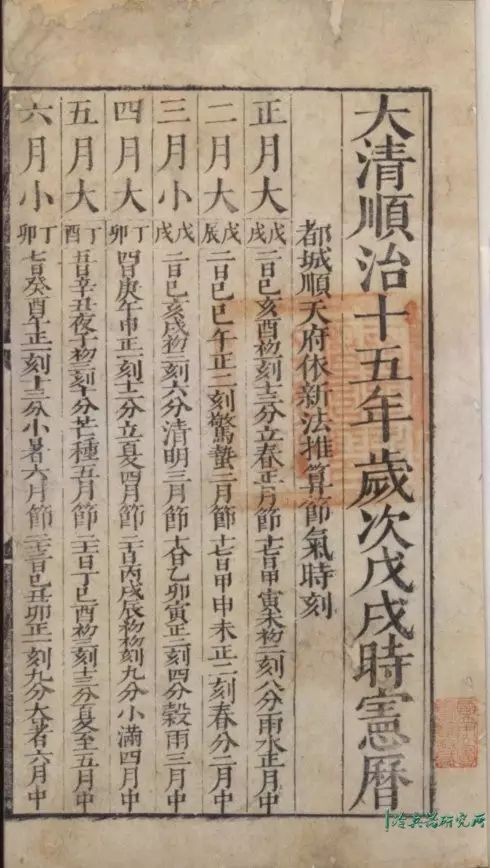 大清順治十五年歲次戊戌時憲曆
都城順天府依新法推算節氣時刻
正月大 戊戌 二日己亥酉初三刻十三分立春正月節 十七日甲寅未初三刻八分雨水正月中
二月大 戊辰 二日己巳午正二刻驚蟄二月節 十七日甲申未正二刻春分二月中
三月小 戊戌 二日己亥戌初二刻六分清明三月節 十八日乙卯寅正三刻四分穀雨三月中
四月大 丁卯 四日庚午申正一刻十二分立夏四月節 二十日丙戌辰初初刻九分小滿四月中
五月大 丁酉 五日辛丑夜子初三刻十分芒種五月節 二十一日丁巳酉初三刻十三分夏至五月中
六月小 丁卯 七日癸酉午正一刻十三分小暑六月節 二十三日己丑卯正一刻九分大暑六月中
冷兵器研究所